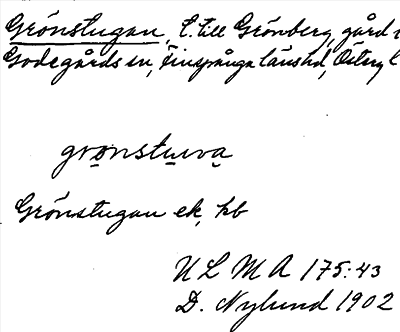 Grönstugan, t. till Grönberg, gård i
Godegårds sn, Finspånga länshd, Östergl
grønstuva
Grönstugan ek, kb
ULMA 175:43
D. Nylund 1902